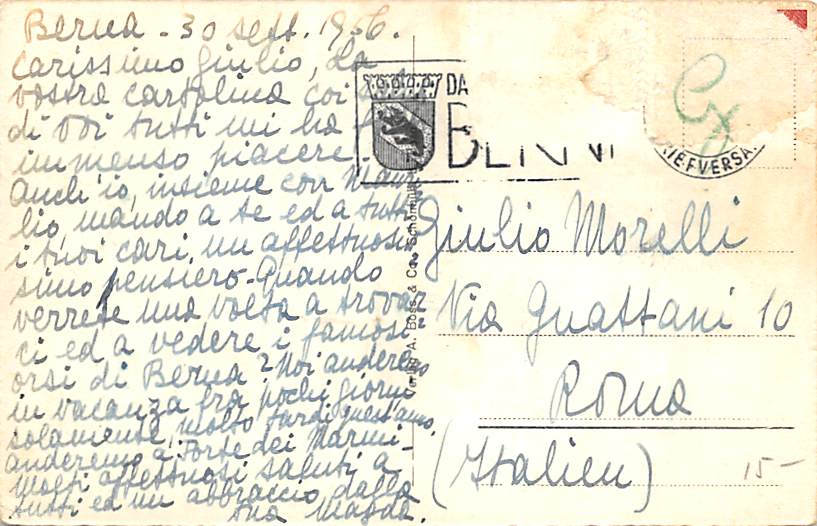 Berna - 30 sett. 1956.
Carissimo Giulio, La
vostra cartolina coi
di voi tutti mi ha
immenso piacere.
Anch'io, insieme con Manu
lio, mando a te ed a tutti
i tuoi cari, un affettuosis
simo pensiero. Quando
verrete una volta a trovar
ci ed a vedere i famosi
orsi di Berna? Noi anderemo
in vacanza fra pochi giorni
solamente, molto tardi quest'anno,
anderemo a Forte dei Marmi -
Molti affettuosi saluti a
tutti ed un abbraccio dalla
tua Magda.
DA
BERN
IEFVERSA
Verlag A. Boss & Co. Schönbühl
Giulio Morelli
Via Guattani 10
Roma
(Italien)
15-